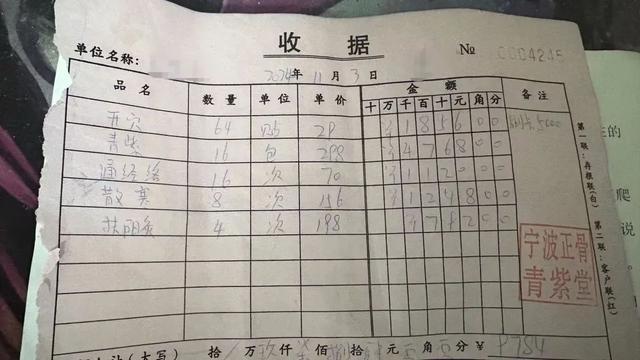 收 据
单位名称: № 0004245
2024年 11月 3日
品名 数量 单位 单价 金额 备注
十 万 千 百 十 元 角 分
开穴 64 贴 29 ¥ 1 8 5 6 0 0
16 包 298 ¥ 4 7 6 8 0 0
通经络 16 次 70 ¥ 1 1 2 0 0 0
散寒 8 次 156 ¥ 1 2 4 8 0 0
扶阳灸 4 次 198
第一联:存根联(白) 第二联:客户联(红)
宁波正骨
青紫堂
(大写) 拾 万 玖仟 柒佰 捌拾 元 角 分 ¥ 9784